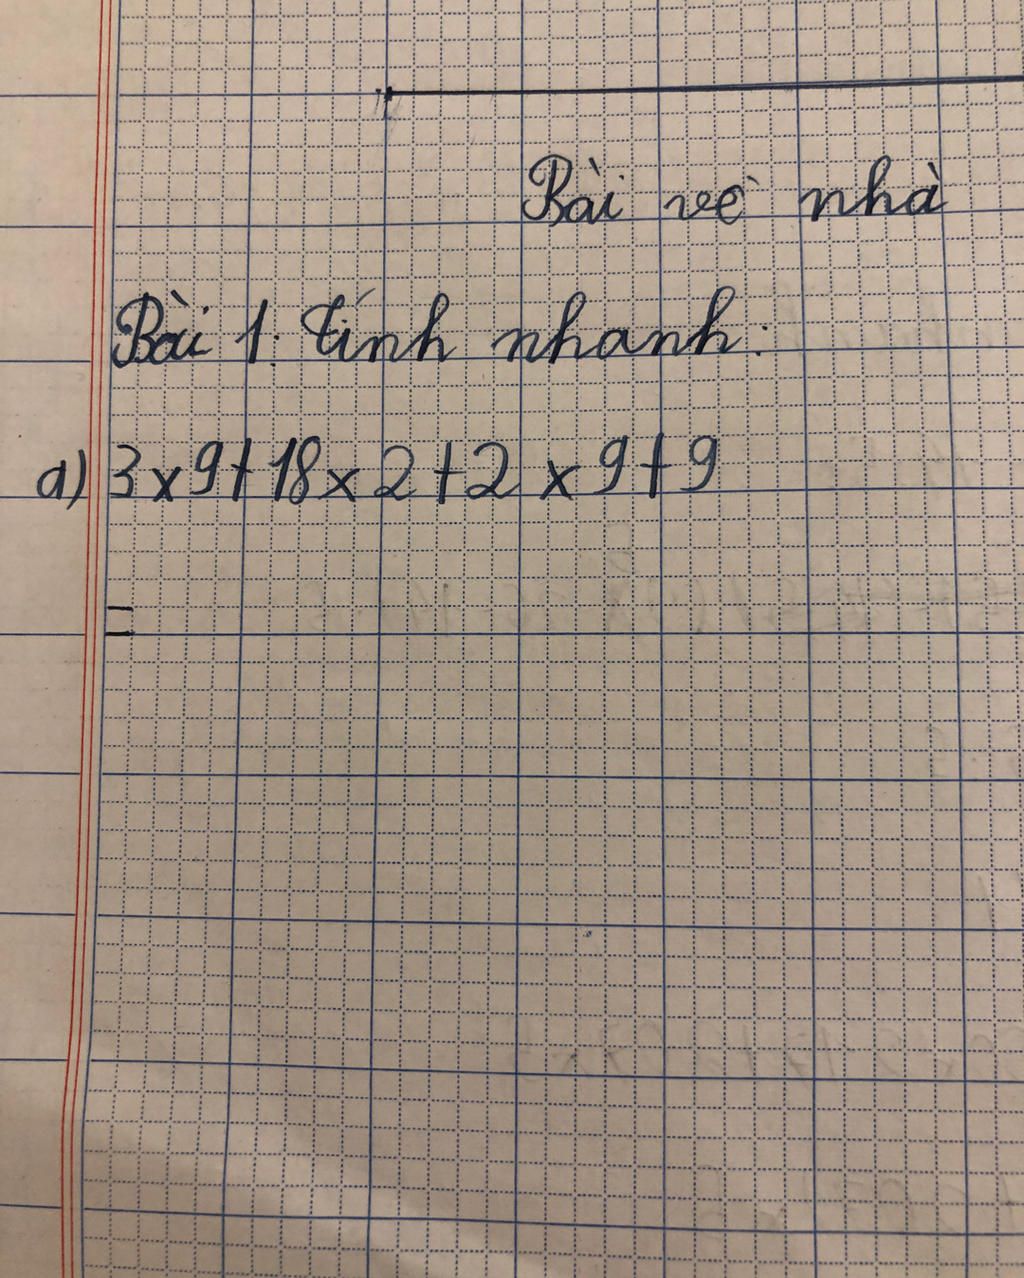 Bài về nhà
Bài 1: Tính nhanh:
a) 3 x 9 + 18 x 2 + 2 x 9 + 9
=